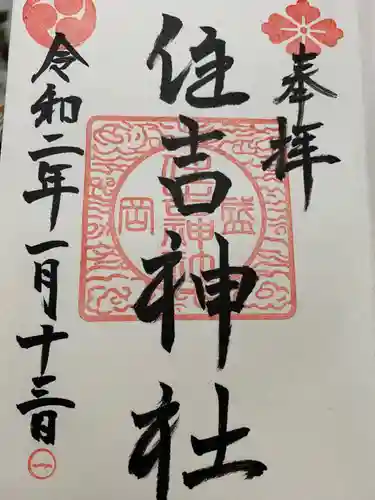 奉拝
住吉神社
盛岡
住吉神社
令和二年一月十三日
一